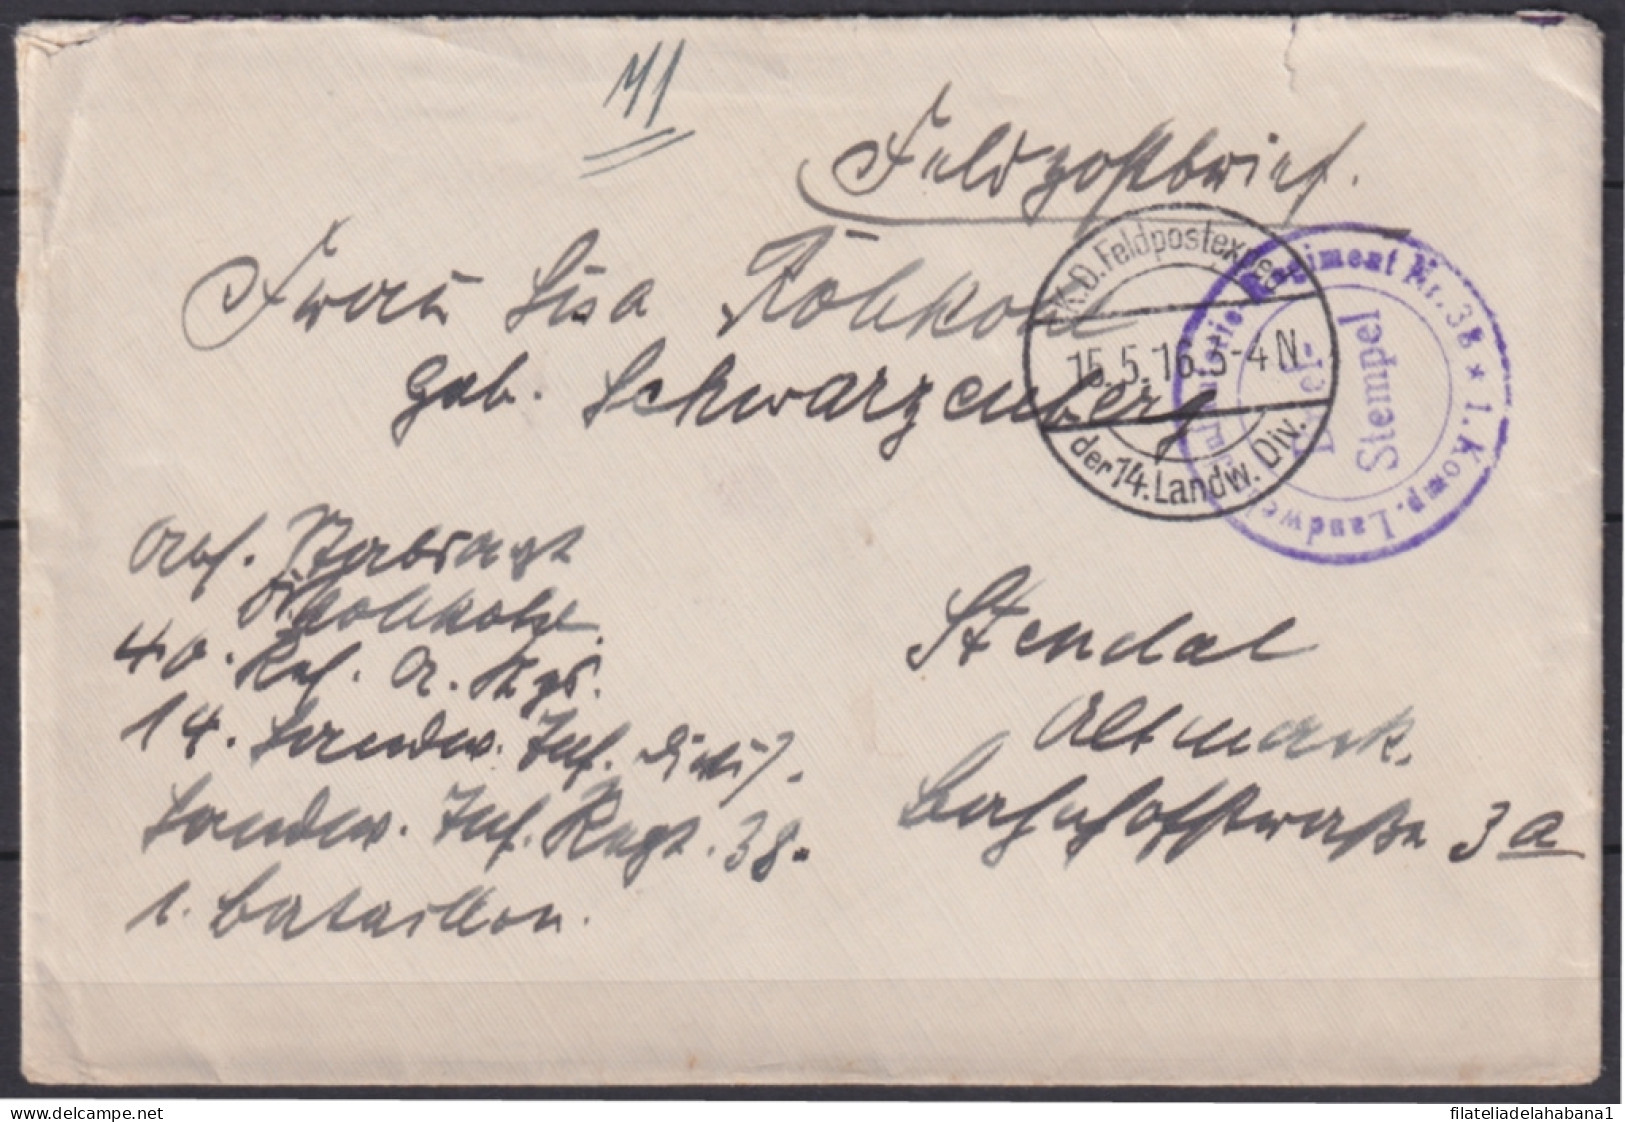 41
Feldpostbrief.
Frau Lisa
geb. Schwarzenberg
K.D. Feldpostexped.
15.5.16 3-4 N.
der 14. Landw. Div.
Landwehr Infanterie Regiment Nr. 38 * 1. Komp.
Brief-
Stempel
Abs. Stabsarzt
Dr.
40. Res. A. Kps.
14. Landw. Inf. Divis.
Landw. Inf. Regt. 38.
1. Bataillon.
Stendal
Altmark.
Bahnhofstraße 3a
delcampe.net
filateliadelahabana1